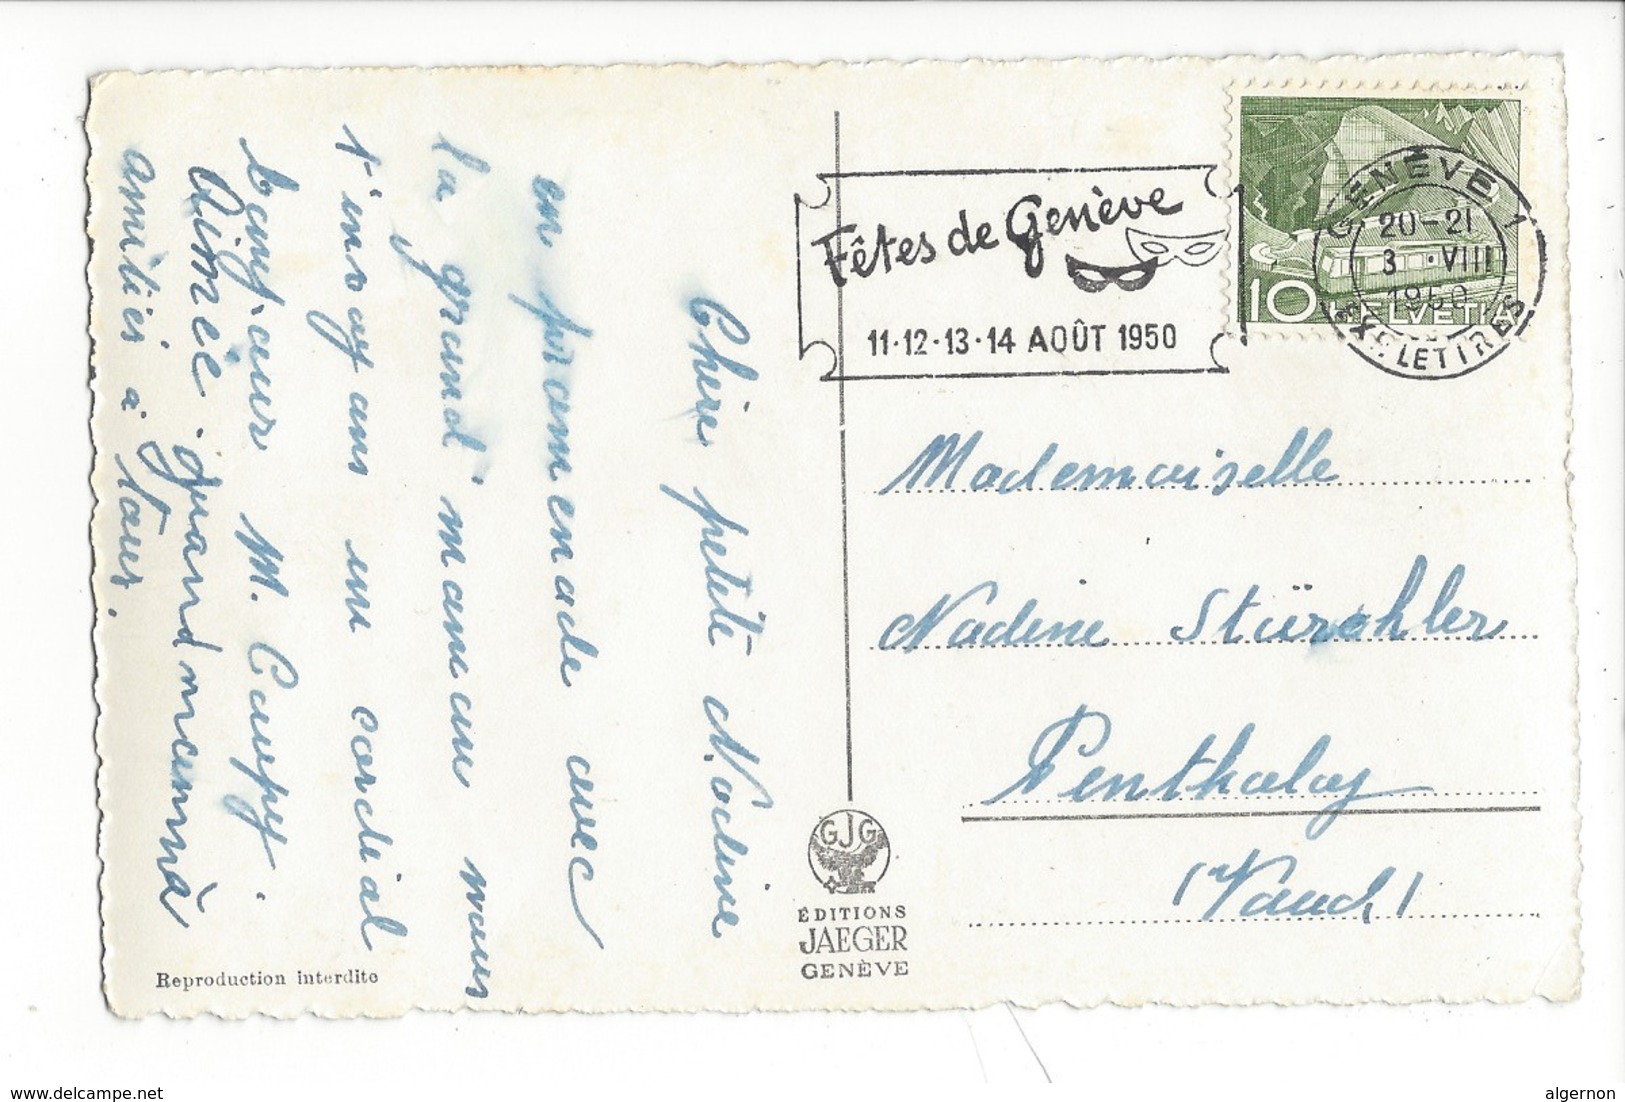 Chère petite Nadine
en promenade avec
la grand'maman nous
t'envoyons un cordial
bonjour M. Coupy.
Aimée. grand'maman
amitiés à tous.
Fêtes de Genève
11·12·13·14 AOÛT 1950
GENÈVE 1
20-21
3 · VIII
1950
EXP. LETTRES
10 HELVETIA
Mademoiselle
Nadine Stürchler
Penthalaz
(Vaud)
GJG
ÉDITIONS
JAEGER
GENÈVE
Reproduction interdite
www.delcampe.net
algernon